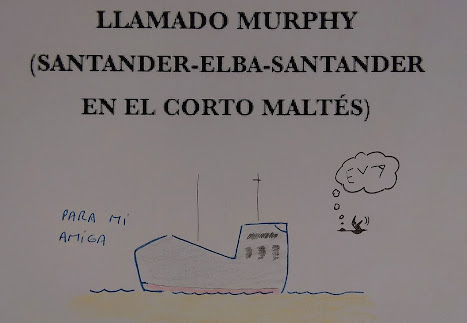 LLAMADO MURPHY
(SANTANDER-ELBA-SANTANDER
EN EL CORTO MALTÉS)
EVA
PARA MI
AMIGA